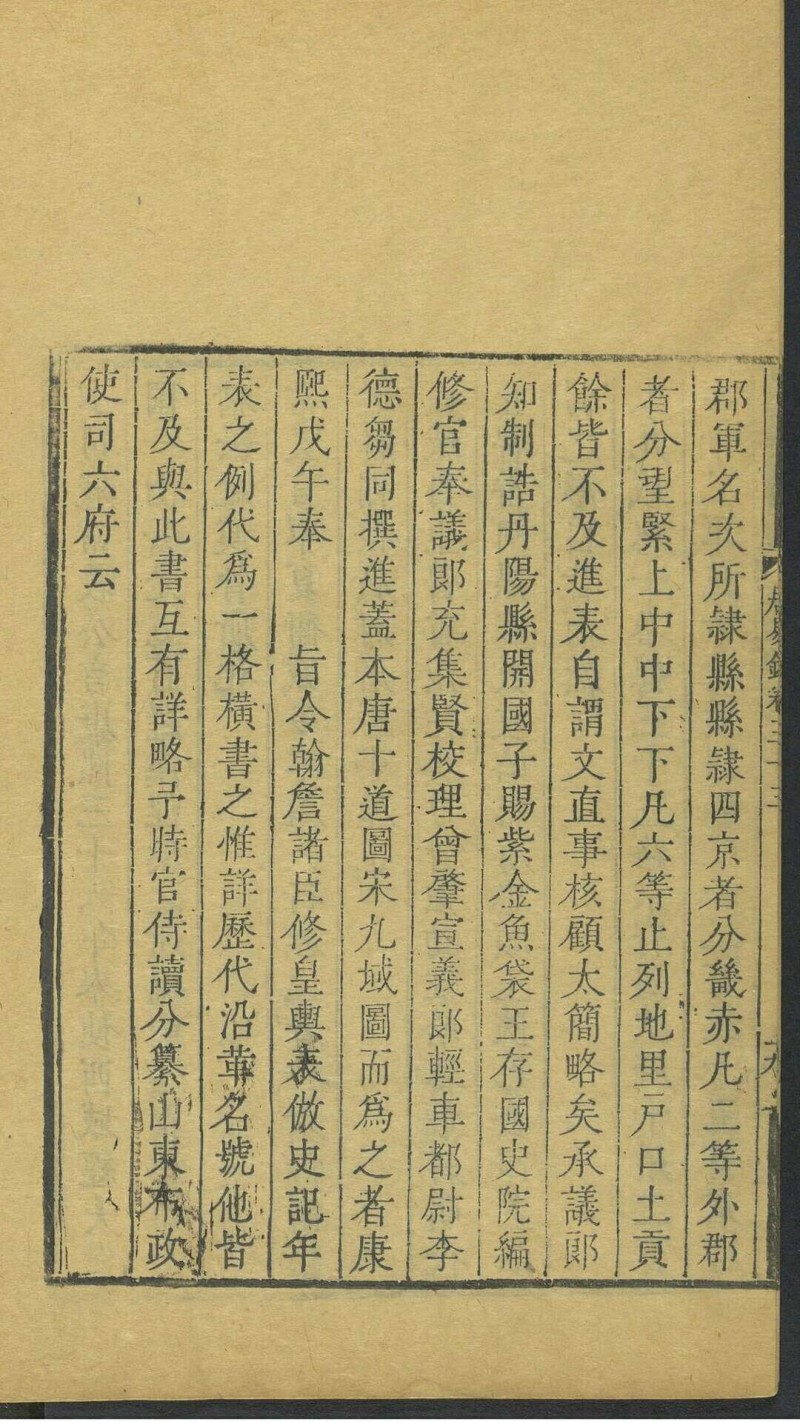 郡軍名次所隷縣縣隷四京者分畿赤凡二等外郡
者分望緊上中中下下凡六等止列地里戸口土貢
餘皆不及進表自謂文直事核顧太簡略矣承議郎
知制誥丹陽縣開國子賜紫金魚袋王存國史院編
修官奉議郎充集賢校理曾肇宣義郎輕車都尉李
德芻同撰進蓋本唐十道圖宋九域圖而爲之者康
熙戊午奉　旨令翰詹諸臣修皇輿表倣史記年
表之例代爲一格橫書之惟詳歷代沿革名號他皆
不及與此書互有詳略予時官侍讀分纂山東布政
使司六府云
居易錄卷三十三